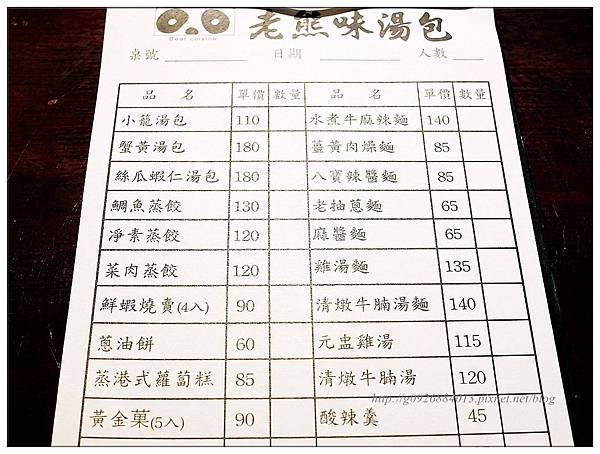 老熊味湯包
Bear cuisine
桌號 日期 人數
品名 單價 數量 品名 單價 數量
小籠湯包 110 水煮牛麻辣麵 140
蟹黃湯包 180 薑黃肉燥麵 85
絲瓜蝦仁湯包 180 八寶辣醬麵 85
鯛魚蒸餃 130 老抽蔥麵 65
凈素蒸餃 120 麻醬麵 65
菜肉蒸餃 120 雞湯麵 135
鮮蝦燒賣(4入) 90 清燉牛腩湯麵 140
蔥油餅 60 元盅雞湯 115
蒸港式蘿蔔糕 85 清燉牛腩湯 120
黃金菓(5入) 90 酸辣羹 45
http://g0926884013.pixnet.net/blog